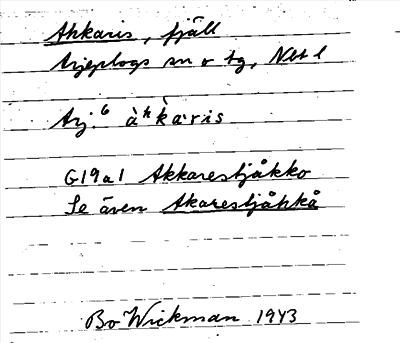 Ahkaris, fjäll
Arjeplogs sn o tg, Nbt l
Arj. 6 àʰk̀a·ris
G19a1 Akkarestjåkko
Se även Akarestjåhkå
Bo Wickman 1943